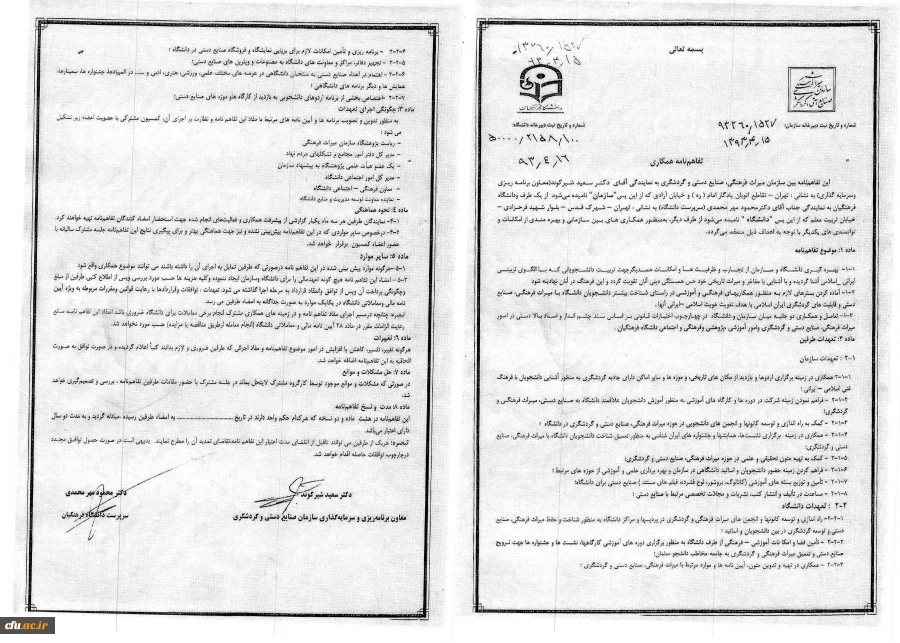 بسمه تعالی
شماره و تاریخ ثبت دبیرخانه سازمان:
۹۳۲۶۰/۱۵۲۷
۱۳۹۳/۴/۱۵
شماره و تاریخ ثبت دبیرخانه دانشگاه:
۵۰۰۰۰/۲۱۵۸/۱۰۰
۹۳/۴/۱۶
تفاهم‌نامه همکاری
این تفاهم‌نامه بین سازمان میراث فرهنگی، صنایع دستی و گردشگری به نمایندگی آقای دکتر سعید شیرکوند(معاون برنامه ریزی
وسرمایه گذاری) به نشانی : تهران - تقاطع اتوبان یادگار امام (ره) و خیابان آزادی که از این پس "سازمان" نامیده می‌شود، از یک طرف ودانشگاه
فرهنگیان به نمایندگی جناب آقای دکترمحمود مهر محمدی (سرپرست دانشگاه) به نشانی : تهران - شهرک قدس - بلوار شهید فرحزادی -
خیابان تربیت معلم که از این پس "دانشگاه " نامیده می‌شود از طرف دیگر، به‌منظور همکاری های بین سازمانی و بهره مندی از امکانات و
توانمندی های یکدیگر با توجه به اهداف ذیل منعقد می‌گردد.
ماده ۱: موضوع تفاهم‌نامه
۱-۱- بهره گیری دانشگاه و سازمان از تجارب و ظرفیت ها و امکانات همدیگر جهت تربیت دانشجویانی که با الگوی تربیتی
ایرانی ـ اسلامی آشنا گردیده و با آشنایی با مفاخر و میراث تاریخی خود حس همبستگی دینی آنان تقویت گردد و این فرهنگ در آنان نهادینه شود
۱-۲- آماده کردن بسترهای لازم به منظور همکاریهای فرهنگی و آموزشی در راستای شناخت بیشتر دانشجویان دانشگاه با میراث فرهنگی، صنایع
دستی و قابلیت های گردشگری ایران اسلامی با هدف تقویت هویت اسلامی -ایرانی آنها.
۱-۳- تعامل و همکاری دو جانبه میان سازمان و دانشگاه در چهارچوب اختیارات قانونی بر اساس سند چشم انداز و اسناد بالا دستی در امور
میراث فرهنگی، صنایع دستی و گردشگری وامور آموزشی، پژوهشی وفرهنگی و اجتماعی دانشگاه فرهنگیان.
ماده ۲: تعهدات طرفین
۲-۱ : تعهدات سازمان
۲-۱-۱- همکاری در زمینه برگزاری اردوها و بازدید از مکان های تاریخی، و موزه ها و سایر اماکن دارای جاذبه گردشگری به منظور آشنایی دانشجویان با فرهنگ
غنی اسلامی - ایرانی ؛
۲-۱-۲- فراهم نمودن زمینه شرکت در دوره ها و کارگاه های آموزشی به منظور آموزش دانشجویان علاقمند دانشگاه به صنایع‌دستی، میراث فرهنگی و
گردشگری؛
۲-۱-۳ - کمک به راه اندازی و توسعه کانونها و انجمن های دانشجویی در حوزه میراث فرهنگی، صنایع دستی و گردشگری در دانشگاه ؛
۲-۱-۴ - همکاری در زمینه برگزاری نشست‌ها، همایشها و جشنواره های ایران شناسی به منظور تعمیق شناخت دانشجویان دانشگاه با میراث فرهنگی، صنایع
دستی و گردشگری؛
۲-۱-۵ - کمک به تهیه متون تحقیقی و علمی در حوزه میراث فرهنگی، صنایع دستی و گردشگری؛
۲-۱-۶ - فراهم کردن زمینه حضور دانشجویان و اساتید دانشگاهی در سازمان و بهره برداری علمی و آموزشی از حوزه های مرتبط؛
۲-۱-۷ - تأمین و توزیع بسته های آموزشی (کاتالوگ، بروشور، لوح فشرده، فیلم های مستند ) صنایع دستی برای دانشگاه؛
۲-۱-۸ - مساعدت در تألیف و انتشار کتب، نشریات و مجلات تخصصی مرتبط با صنایع دستی ؛
۲-۲ : تعهدات دانشگاه
۲-۲-۱- راه اندازی و توسعه کانونها و انجمن های میراث فرهنگی و گردشگری در پردیسها و مراکز دانشگاه به منظور شناخت و حفظ میراث فرهنگی، صنایع
دستی و توسعه گردشگری در بین دانشجویان و اساتید ؛
۲-۲-۲- تأمین فضا و امکانات آموزشی - فرهنگی از طرف دانشگاه به منظور برگزاری دوره های آموزشی کارگاهها، نشست ها و جشنواره ها جهت ترویج
صنایع دستی و تعمیق میراث فرهنگی و گردشگری به جامعه مخاطب دانشجو معلمان؛
۲-۲-۳ - همکاری در تهیه و تدوین متون، آیین نامه ها و موارد مرتبط با میراث فرهنگی، صنایع دستی و گردشگری ؛
۲-۲-۴ - برنامه ریزی و تأمین امکانات لازم برای برپایی نمایشگاه و فروشگاه صنایع دستی در دانشگاه ؛
۲-۲-۵ - تجهیز دفاتر، مراکز و معاونت های دانشگاه به مصنوعات و ویترین های صنایع دستی؛
۲-۲-۶ - اهتمام در اهداء صنایع دستی به منتخبان دانشگاهی در عرصه های مختلف علمی، ورزشی، هنری، ادبی و ..... در المپیادها، جشنواره ها، سمینارها،
همایش ها و دیگر برنامه های دانشگاهی ؛
۲-۲-۷ -اختصاص بخشی از برنامه اردوهای دانشجویی به بازدید از کارگاه ها و موزه های صنایع دستی؛
ماده ۳: چگونگی اجرای تعهدات
به منظور تدوین و تصویب برنامه ها و آیین نامه های مرتبط با مفاد این تفاهم نامه و نظارت بر اجرای آن، کمسیون مشترکی با عضویت اعضاء زیر تشکیل
می شود :
- ریاست پژوهشگاه سازمان میراث فرهنگی
- مدیر کل دفتر امور مجامع و تشکلهای مردم نهاد
- یک عضو هیأت علمی پژوهشگاه به پیشنهاد سازمان
- مدیر کل امور اجتماعی دانشگاه
- معاون فرهنگی - اجتماعی دانشگاه
- نماینده معاونت توسعه مدیریت و منابع دانشگاه
ماده ۴: نحوه هماهنگی
۴-۱- نمایندگان طرفین هر سه ماه یکبار گزارشی از پیشرفت همکاری و فعالیت‌های انجام شده جهت استحضار امضاء کنندگان تفاهم‌نامه تهیه خواهند کرد.
۴-۲- درخصوص سایر مواردی که در این تفاهم‌نامه پیش‌بینی نشده و نیز جهت هماهنگی بهتر و برای پیگیری نتایج این تفاهم‌نامه جلسه مشترک سالیانه با
حضور اعضاء کمسیون برقرار خواهد شد.
ماده ۵: سایر موارد
۵-۱ -هرگونه موارد پیش بینی شده در این تفاهم نامه درصورتی که طرفین تمایل به اجرای آن را داشته باشند می توانند موضوع همکاری واقع شود
۵-۲ - امضاء این تفاهم نامه هیچ گونه تعهدمالی را برای دانشگاه وسازمان ایجاد ننموده وکلیه هزینه ها حسب مورد بررسی وپس از اطلاع کتبی طرفین از مبلغ
وچگونگی پرداخت آن وپس از توافق وانعقاد قرارداد به مرحله اجرا گذاشته می شود. تعهدات ، توافقات وقراردادها با رعایت قوانین ومقررات مربوطه به ویژه آیین
نامه مالی ومعاملاتی دانشگاه در یکایک موارد به صورت جداگانه به امضاء طرفین می رسد.
تبصره: چنانچه درمسیر اجرای مفاد تفاهم نامه و در زمینه های همکاری مشترک انجام برخی معاملات برای دانشگاه ضروری باشد انعقاد این تفاهم نامه مانع
رعایت الزامات مقرر در ماده ۲۸ آیین نامه مالی و معاملاتی دانشگاه (انجام معامله ازطریق مناقصه یا مزایده) حسب مورد نخواهد شد.
ماده ۶: تغییرات
هرگونه تغییر، تفسیر، کاهش یا افزایش در امور موضوع تفاهم‌نامه و مفاد اجرائی که طرفین ضروری و لازم بدانند کتباً اعلام گردیده و در صورت توافق به صورت
الحاقیه به این تفاهم‌نامه اضافه خواهد شد.
ماده ۷: حل مشکلات و موانع
در صورتی که مشکلات و موانع موجود توسط کارگروه مشترک لاینحل بماند در جلسه مشترک با حضور مقامات طرفین تفاهم‌نامه ، بررسی و تصمیم‌گیری خواهد
شد.
ماده ۸: مدت و نسخ تفاهم‌نامه
این تفاهم‌نامه در هشت ماده و دو نسخه که هرکدام حکم واحد دارند در تاریخ .................... به امضاء طرفین رسیده ،مبادله گردید و به مدت دو سال
دارای اعتبار می‌باشد.
تبصره: هریک از طرفین می توانند تاقبل از انقضای مدت اعتبار این تفاهم نامه،تقاضای تمدید آن را مطرح نمایند. بدیهی است در صورت حصول توافق مجدد
درچارچوب توافقات حاصله اقدام خواهد شد.
دکتر سعید شیرکوند
معاون برنامه‌ریزی و سرمایه‌گذاری سازمان صنایع دستی و گردشگری
دکتر محمود مهر محمدی
سرپرست دانشگاه فرهنگیان
cfu.ac.ir